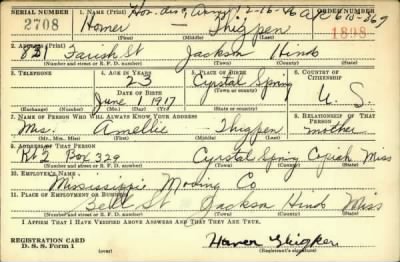 SERIAL NUMBER 1. NAME (Print) Hon. dis. Army 12-16-46 ORDER NUMBER
2708 Homer — Thigpen 1898
(First) (Middle) (Last)
2. ADDRESS (Print)
821 Farish St Jackson Hinds
(Number and street or R. F. D. number) (Town) (County) (State)
3. TELEPHONE 4. AGE IN YEARS 5. PLACE OF BIRTH 6. COUNTRY OF CITIZENSHIP
23 Cyrstal Spring
DATE OF BIRTH (Town or county)
June 1917 U. S.
(Exchange) (Number) (Mo.) (Day) (Yr.) (State or country)
7. NAME OF PERSON WHO WILL ALWAYS KNOW YOUR ADDRESS 8. RELATIONSHIP OF THAT PERSON
Mrs. Amellie Thigpen mother
(Mr., Mrs., Miss) (First) (Middle) (Last)
9. ADDRESS OF THAT PERSON
Rt 2 Box 329 Cyrstal Spring Copiah Miss
(Number and street or R. F. D. number) (Town) (County) (State)
10. EMPLOYER'S NAME
Mississippi Mooing Co
11. PLACE OF EMPLOYMENT OR BUSINESS
Bell St Jackson Hinds Miss
(Number and street or R. F. D. number) (Town) (County) (State)
I AFFIRM THAT I HAVE VERIFIED ABOVE ANSWERS AND THAT THEY ARE TRUE.
REGISTRATION CARD
D. S. S. Form 1 (Registrant's signature)